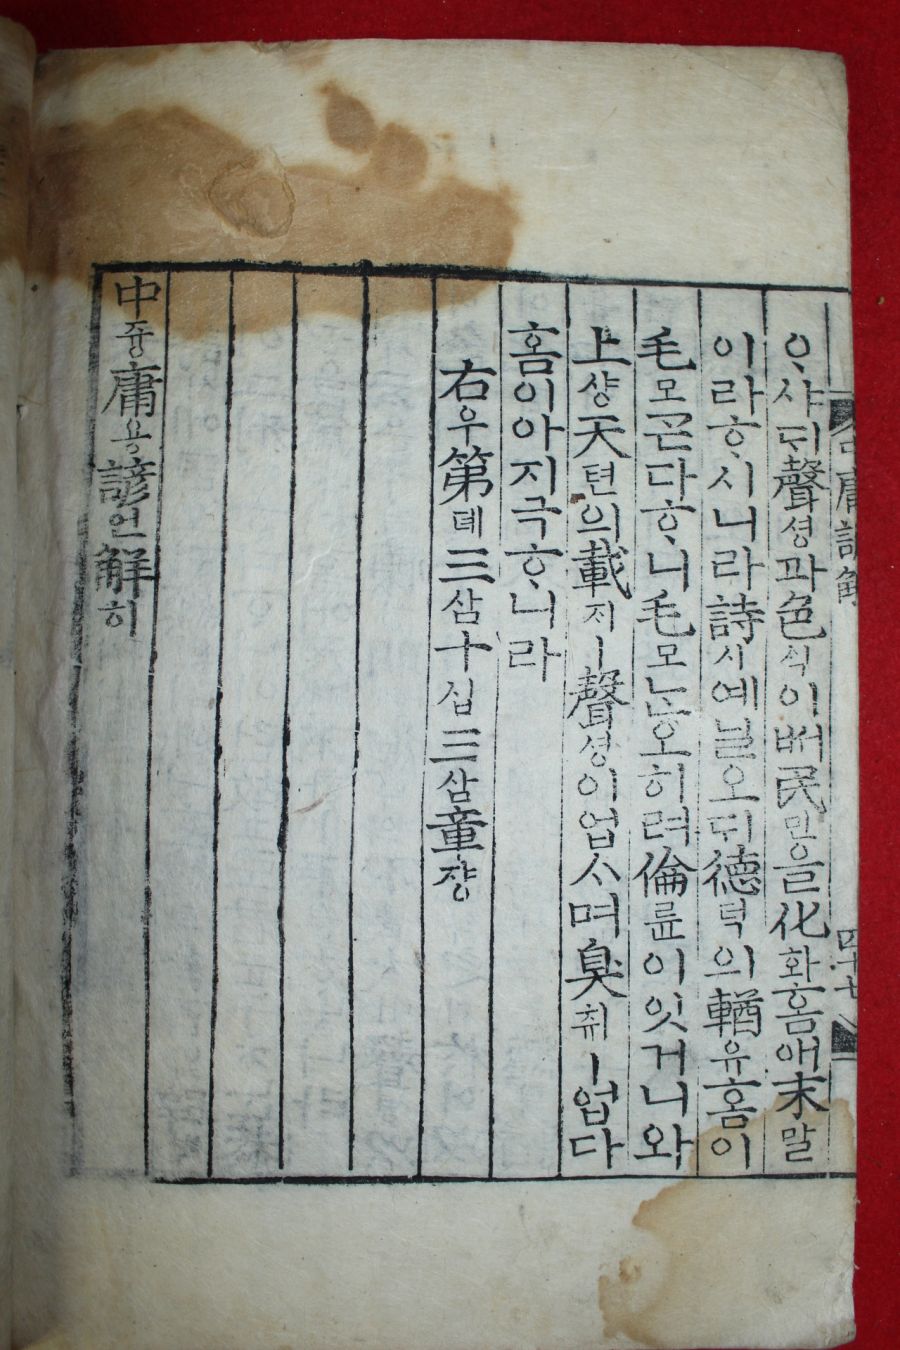 中庸諺解 四十七
ᄋᆞ샤ᄃᆡ聲셩과色ᄉᆡᆨ이ᄡᅥ民민을化화홈애末말
이라ᄒᆞ시니라詩시예닐오ᄃᆡ德덕의輶유홈이
毛모ᄀᆞᆮ다ᄒᆞ니毛모ᄂᆞᆫ오히려倫륜이잇거니와
上샹天텬의載ᄌᆡㅣ聲셩이업스며臭취ㅣ업다
홈이아지극ᄒᆞ니라
右우第뎨三삼十십三삼章쟝
中듕庸용諺언解ᄒᆡ